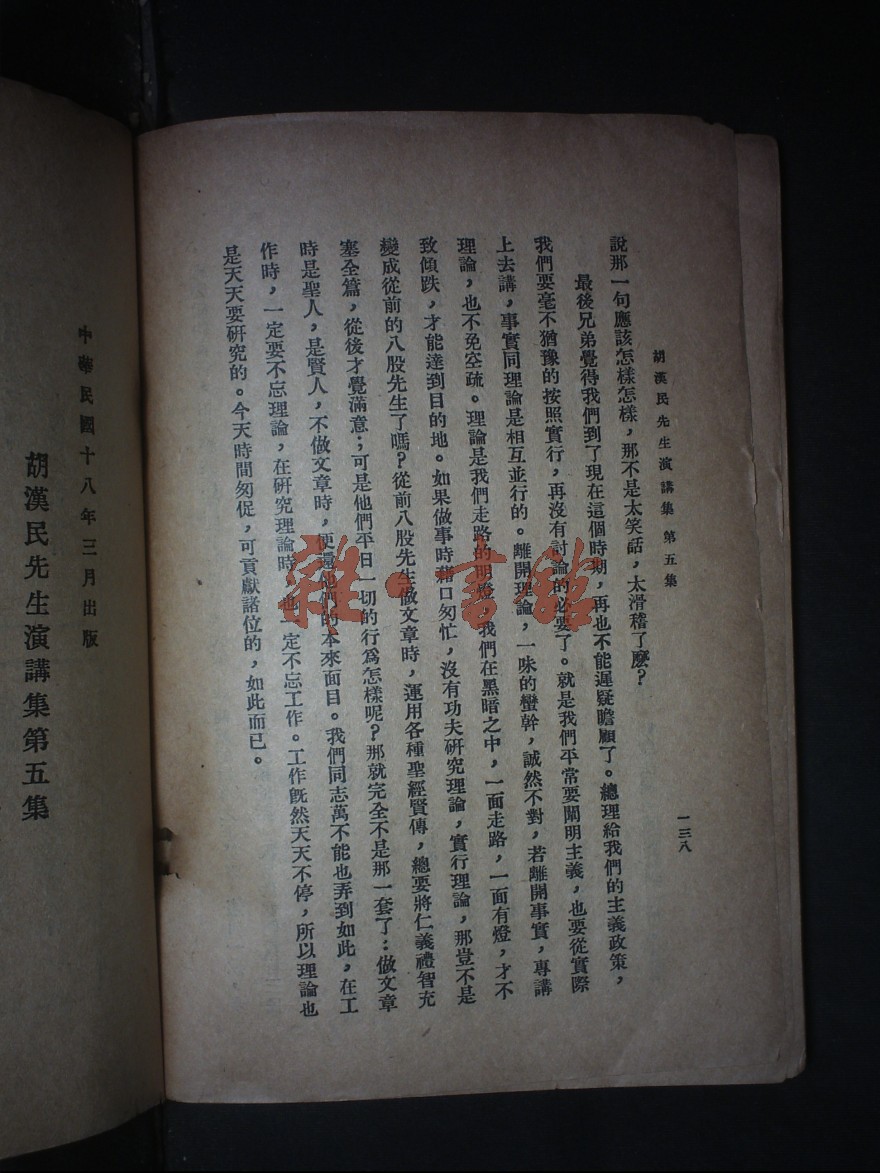 胡漢民先生演講集 第五集
一三八
說那一句應該怎樣怎樣，那不是太笑話，太滑稽了麽？
最後兄弟覺得我們到了現在這個時期，再也不能遲疑瞻顧了。總理給我們的主義政策，
我們要毫不猶豫的按照實行，再沒有討論的必要了。就是我們平常要闡明主義，也要從實際
上去講，事實同理論是相互並行的。離開理論，一味的蠻幹，誠然不對，若離開事實，專講
理論，也不免空疏。理論是我們走路的明燈，我們在黑暗之中，一面走路，一面有燈，才不
致傾跌，才能達到目的地。如果做事時藉口匆忙，沒有功夫研究理論，實行理論，那豈不是
變成從前的八股先生了嗎？從前八股先生做文章時，運用各種聖經賢傳，總要將仁義禮智充
塞全篇，從後才覺滿意；可是他們平日一切的行爲怎樣呢？那就完全不是那一套了：做文章
時是聖人，是賢人，不做文章時，便還他們的本來面目。我們同志萬不能也弄到如此，在工
作時，一定要不忘理論，在研究理論時，也一定不忘工作。工作旣然天天不停，所以理論也
是天天要研究的。今天時間匆促，可貢獻諸位的，如此而已。
中華民國十八年三月出版
胡漢民先生演講集第五集
雜·書館